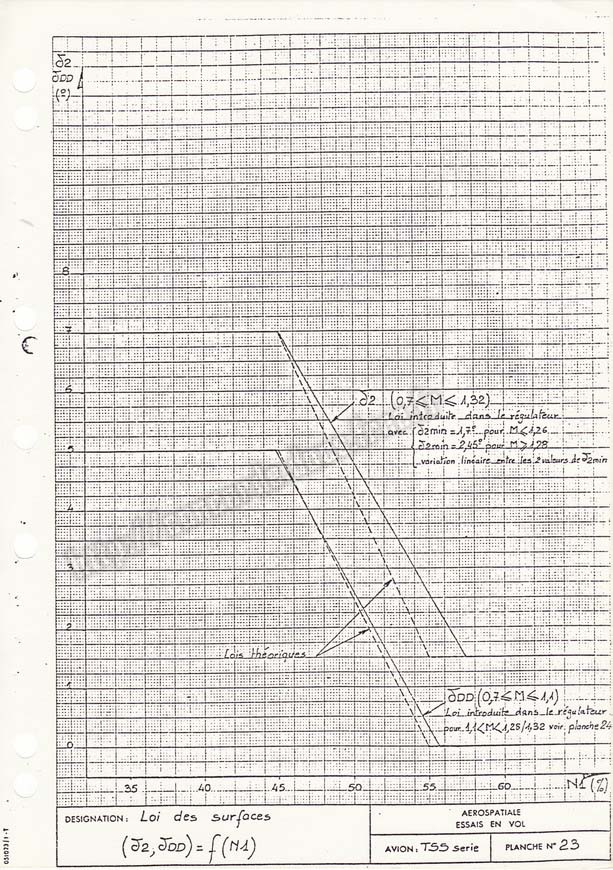 δ2
δDD
(°)
8
7
6
5
4
3
2
1
0
δ2 (0,7≤M≤1,32)
Loi introduite dans le régulateur
avec δ2min=1,7° pour M≤1,26
δ2min=2,45° pour M≥1,28
variation linéaire entre les 2 valeurs de δ2min
Lois théoriques
δDD (0,7≤M≤1,1)
Loi introduite dans le régulateur
pour 1,1<M<1,25/1,32 voir planche 24
35 40 45 50 55 60 N1 (%)
DESIGNATION: Loi des surfaces
(δ2, δDD) = f(N1)
AEROSPATIALE
ESSAIS EN VOL
AVION: TSS serie
PLANCHE N° 23